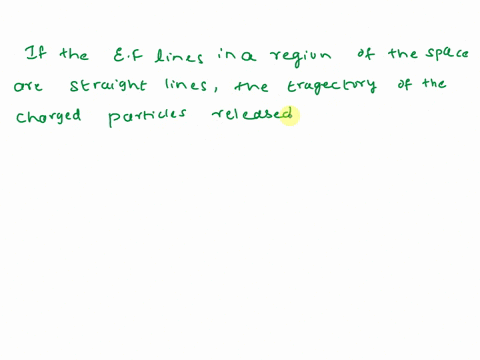 If the E.F lines in a region of the space
are straight lines, the tragectory of the
charged particles released